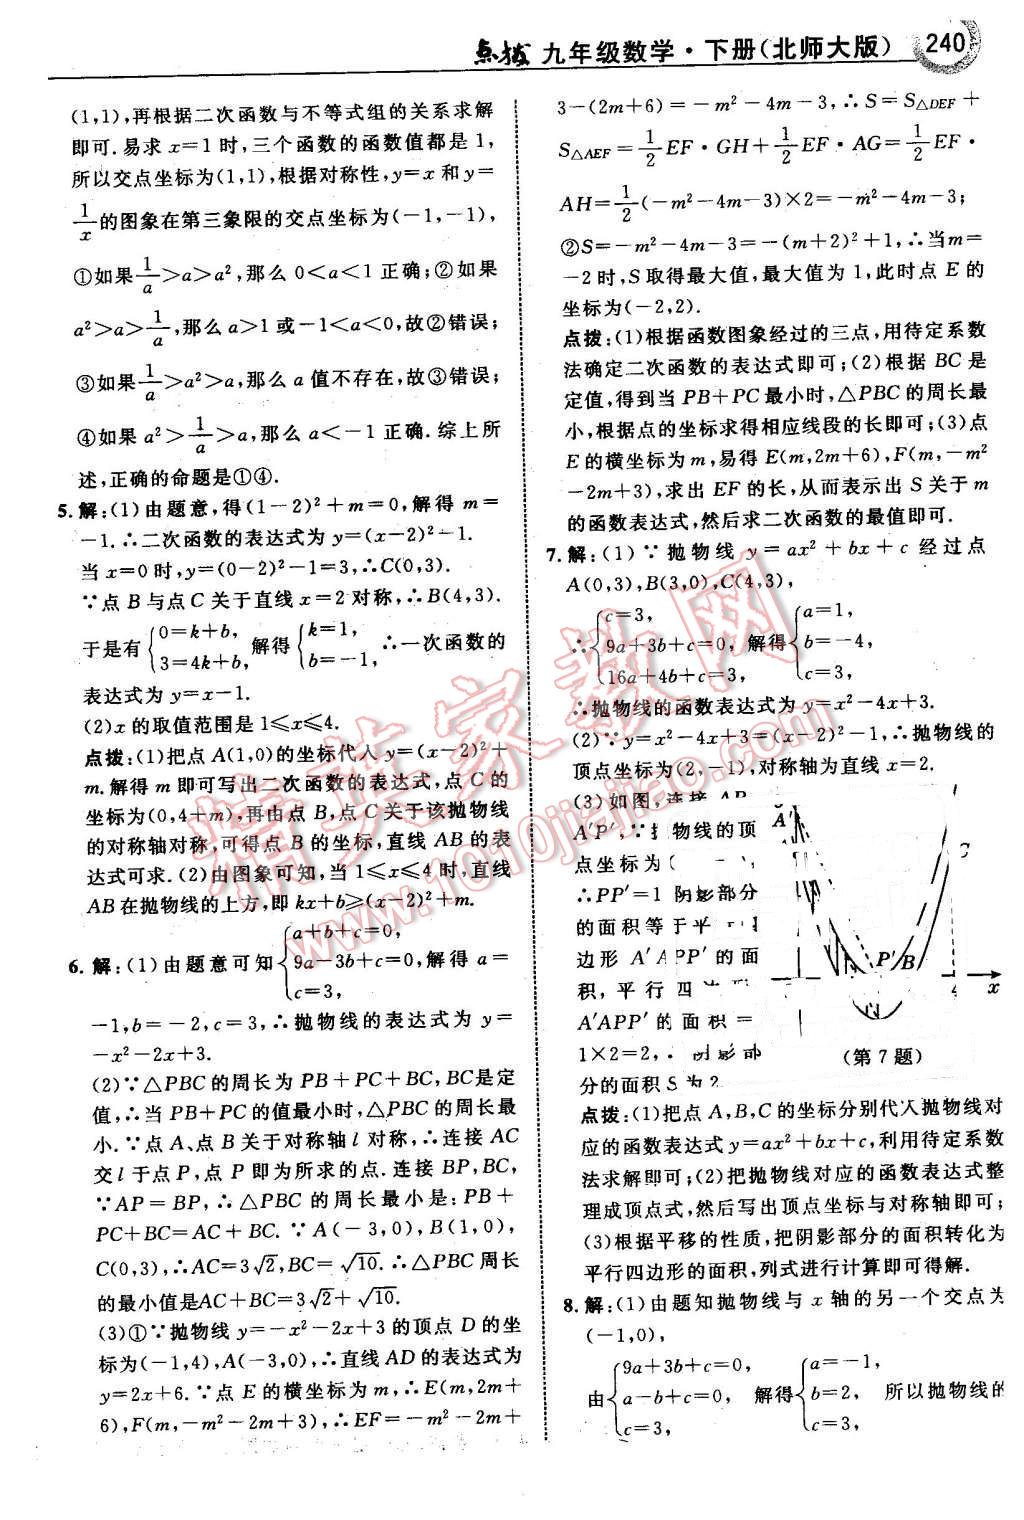 点拨 九年级数学·下册(北师大版) 240
(1,1),再根据二次函数与不等式组的关系求解
即可.易求x=1时,三个函数的函数值都是1,
所以交点坐标为(1,1),根据对称性,y=x和y=
1/x的图象在第三象限的交点坐标为(-1,-1),
①如果1/a>a>a²,那么0<a<1正确;②如果
a²>a>1/a,那么a>1或-1<a<0,故②错误;
③如果1/a>a²>a,那么a值不存在,故③错误;
④如果a²>1/a>a,那么a<-1正确.综上所
述,正确的命题是①④.
5.解:(1)由题意,得(1-2)²+m=0,解得m=
-1.∴二次函数的表达式为y=(x-2)²-1.
当x=0时,y=(0-2)²-1=3,∴C(0,3).
∵点B与点C关于直线x=2对称,∴B(4,3).
于是有{0=k+b, 3=4k+b, 解得{k=1, b=-1, ∴一次函数的
表达式为y=x-1.
(2)x的取值范围是1≤x≤4.
点拨:(1)把点A(1,0)的坐标代入y=(x-2)²+
m.解得m即可写出二次函数的表达式,点C的
坐标为(0,4+m),再由点B、点C关于该抛物线
的对称轴对称,可得点B的坐标,直线AB的表
达式可求.(2)由图象可知,当1≤x≤4时,直线
AB在抛物线的上方,即kx+b≥(x-2)²+m.
6.解:(1)由题意可知{a+b+c=0, 9a-3b+c=0, c=3, 解得a=
-1,b=-2,c=3,∴抛物线的表达式为y=
-x²-2x+3.
(2)∵△PBC的周长为PB+PC+BC,BC是定
值,∴当PB+PC的值最小时,△PBC的周长最
小.∵点A、点B关于对称轴l对称,∴连接AC
交l于点P,点P即为所求的点.连接BP,BC,
∵AP=BP,∴△PBC的周长最小是:PB+
PC+BC=AC+BC.∵A(-3,0),B(1,0),
C(0,3),∴AC=3√2,BC=√10.∴△PBC周长
的最小值是AC+BC=3√2+√10.
(3)①∵抛物线y=-x²-2x+3的顶点D的坐
标为(-1,4),A(-3,0),∴直线AD的表达式为
y=2x+6.∵点E的横坐标为m,∴E(m,2m+
6),F(m,-m²-2m+3),∴EF=-m²-2m+
3-(2m+6)=-m²-4m-3,∴S=S△DEF+
S△AEF=1/2EF·GH+1/2EF·AG=1/2EF·
AH=1/2(-m²-4m-3)×2=-m²-4m-3;
②S=-m²-4m-3=-(m+2)²+1,∴当m=
-2时,S取得最大值,最大值为1,此时点E的
坐标为(-2,2).
点拨:(1)根据函数图象经过的三点,用待定系数
法确定二次函数的表达式即可;(2)根据BC是
定值,得到当PB+PC最小时,△PBC的周长最
小,根据点的坐标求得相应线段的长即可;(3)点
E的横坐标为m,易得E(m,2m+6),F(m,-m²
-2m+3),求出EF的长,从而表示出S关于m
的函数表达式,然后求二次函数的最值即可.
7.解:(1)∵抛物线y=ax²+bx+c经过点
A(0,3),B(3,0),C(4,3),
∴{c=3, 9a+3b+c=0, 16a+4b+c=3, 解得{a=1, b=-4, c=3,
∴抛物线的函数表达式为y=x²-4x+3.
(2)∵y=x²-4x+3=(x-2)²-1,∴抛物线的
顶点坐标为(2,-1),对称轴为直线x=2.
(3)如图,连接AB
A'P',∵物线的顶
点坐标为(
∴PP'=1 阴影部分
的面积等于平
边形A'APP'的面
积,平行四边形
A'APP'的面积=
1×2=2,∴阴影部
分的面积S为2
A' C P' B 4 x
(第7题)
点拨:(1)把点A,B,C的坐标分别代入抛物线对
应的函数表达式y=ax²+bx+c,利用待定系数
法求解即可;(2)把抛物线对应的函数表达式整
理成顶点式,然后写出顶点坐标与对称轴即可;
(3)根据平移的性质,把阴影部分的面积转化为
平行四边形的面积,列式进行计算即可得解.
8.解:(1)由题知抛物线与x轴的另一个交点为
(-1,0),
由{9a+3b+c=0, a-b+c=0, c=3, 解得{a=-1, b=2, c=3, 所以抛物线的
精英家教网
www.1010jiajiao.com